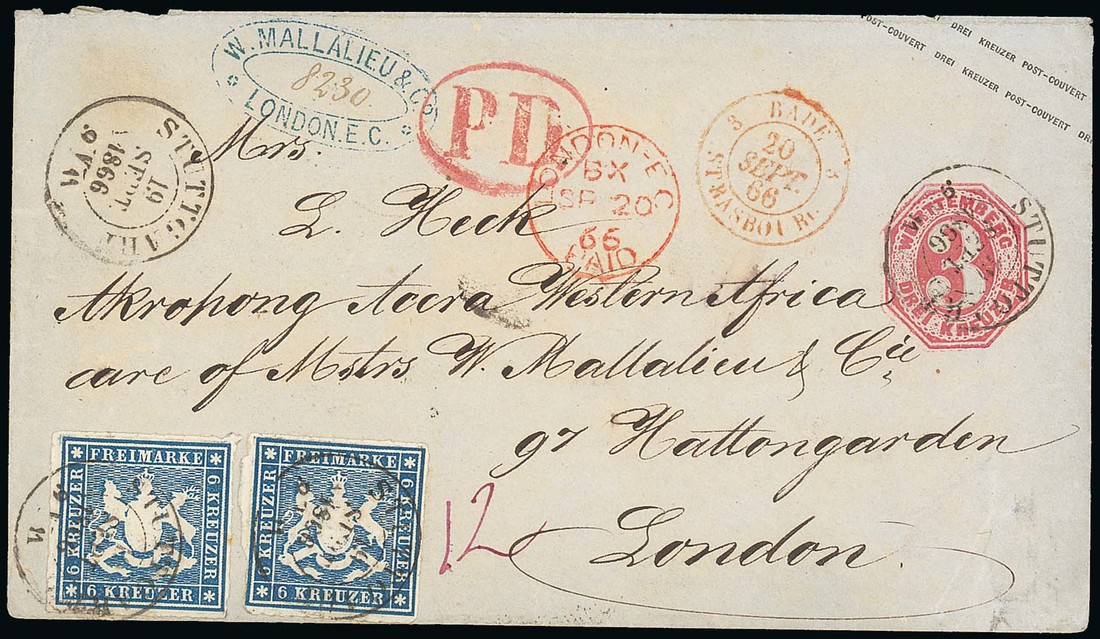 POST-COUVERT DREI KREUZER POST-COUVERT
DREI KREUZER POST-COUVERT DREI KREUZER POST-COUVERT
KREUZER POST-COUVERT
W. MALLALIEU & Co
8230.
LONDON.E.C.
PD
STUTTGART
19
SEPT
1866
LONDON-E.C
BX
SP 20
66
PAID
3 BADE 3
20
SEPT.
66
STRASBOURG
WÜRTTEMBERG
3
DREI KREUZER
STUTTG
Mrs.
L. Heck
Akropong Accra Western Africa
care of Mstrs W. Mallalieu & Cie
97 Hattongarden
London
12
FREIMARKE
6 KREUZER
6 KREUZER
6 KREUZER
FREIMARKE
6 KREUZER
6 KREUZER
6 KREUZER